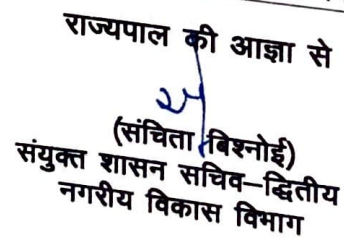 राज्यपाल की आज्ञा से
(संचिता बिश्नोई)
संयुक्त शासन सचिव–द्धितीय
नगरीय विकास विभाग